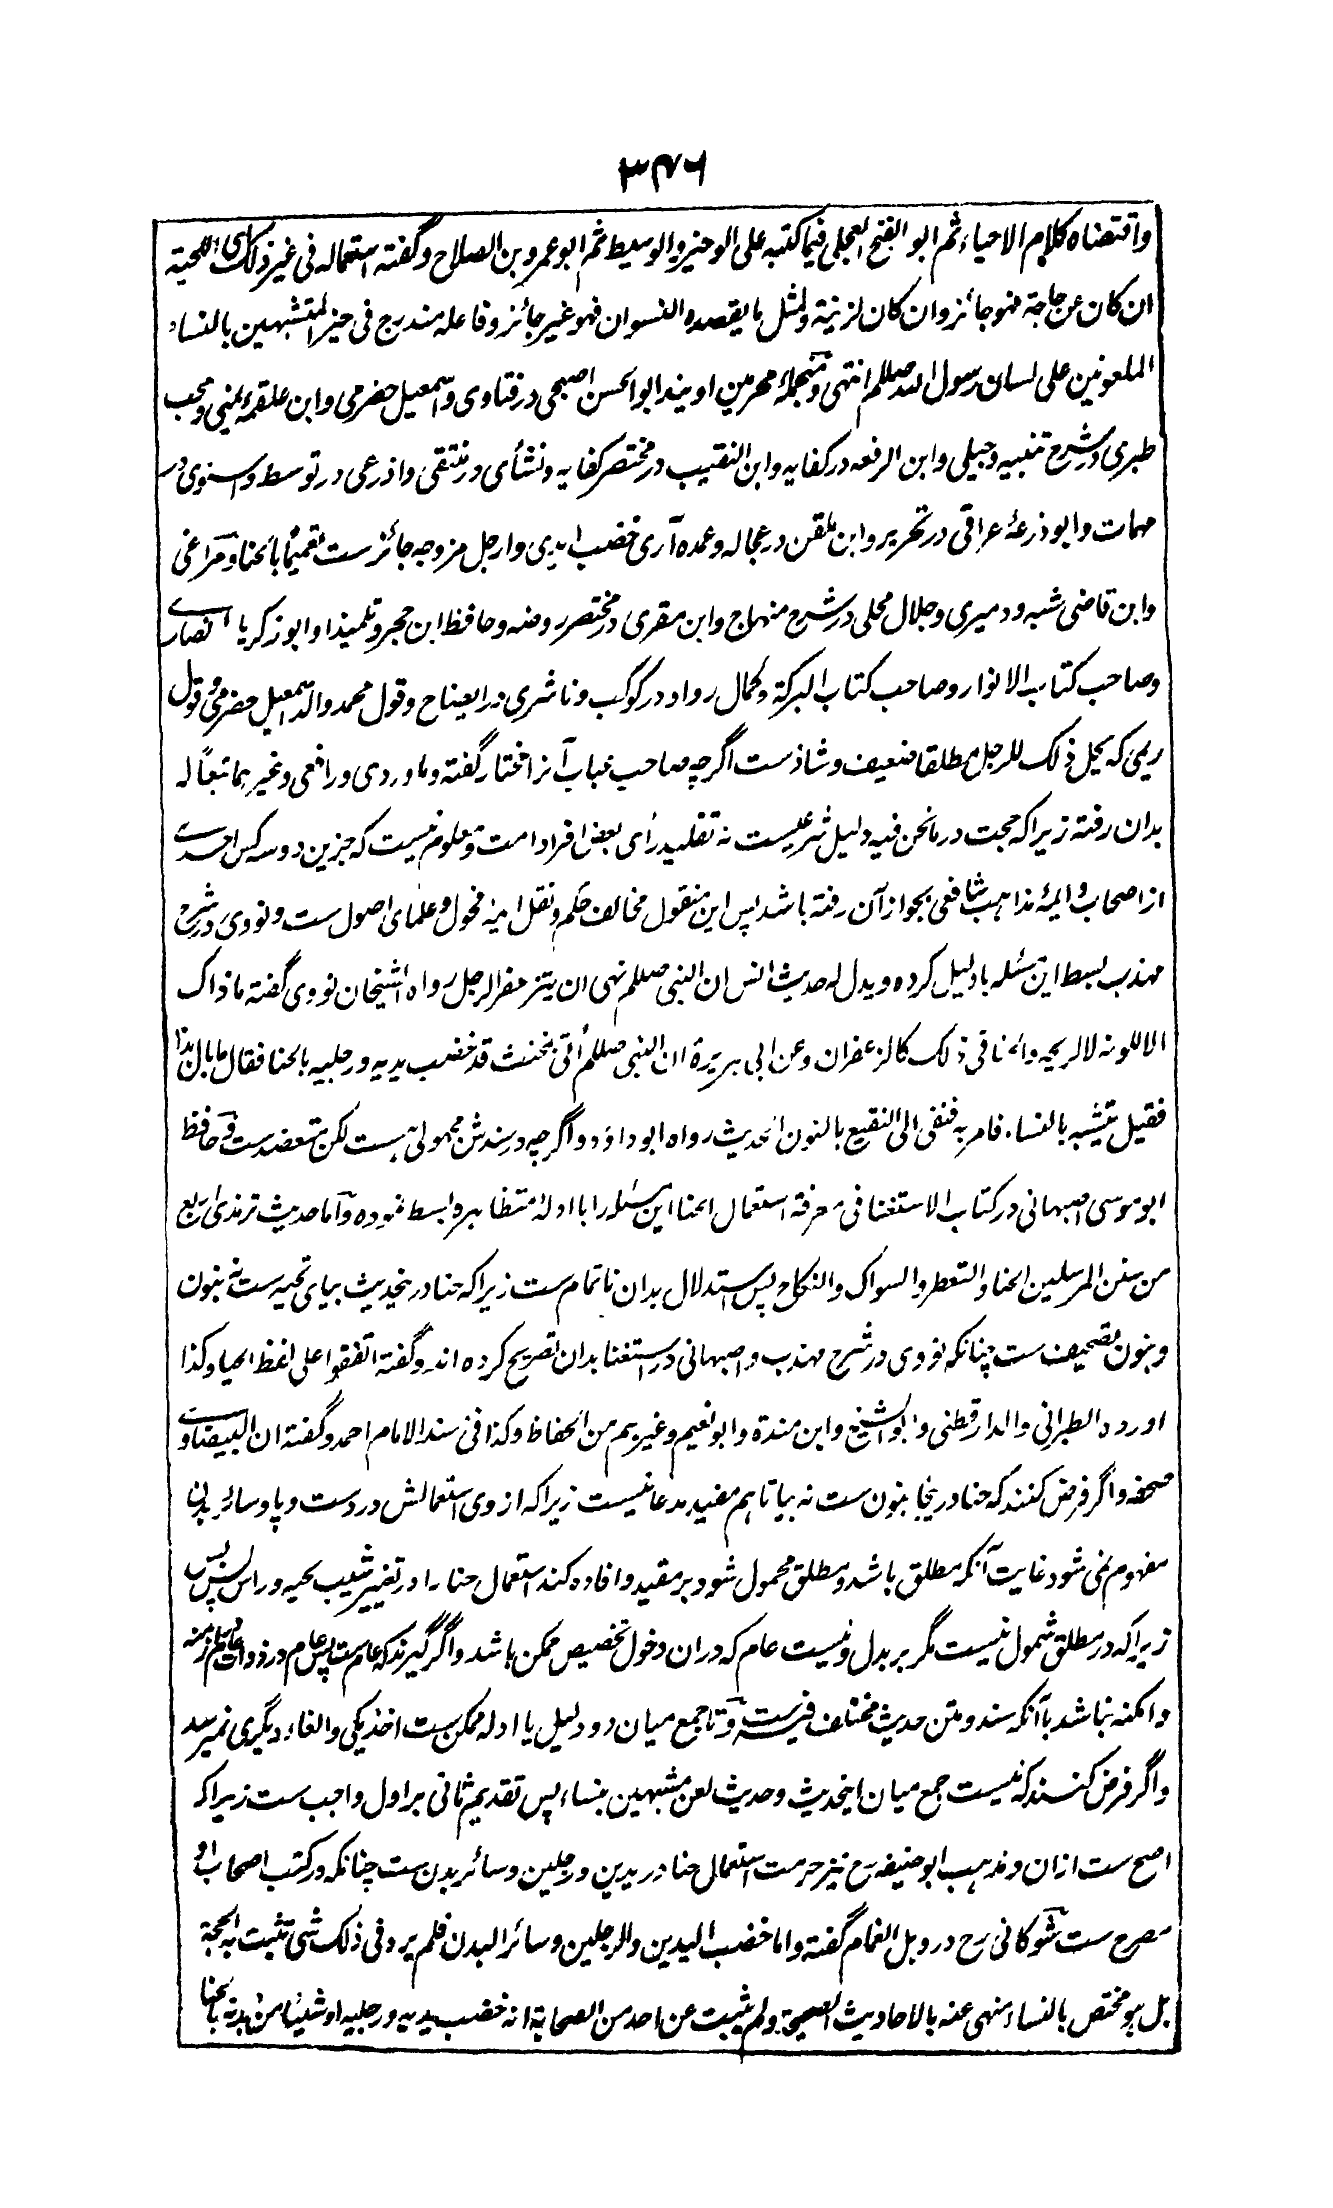 ۳۴۶
واقتضاه كلام الاحياء ثم ابو الفتح العجلی فيما كتبه على الوجيز والوسيط ثم ابو عمرو بن الصلاح و گفته استعماله فی غير ذلک ای اللحية
ان كان عن حاجة فهو جائز وان كان لزينة ولمثل ما يقصده النسوان فهو غير جائز وفاعله مندرج فی حيز المتشبهين بالنساء
الملعونين على لسان رسول الله صللم انتهى و منجملهٔ محرمين او يند ابو الحسن اصبحی در فتاوی و اسمعيل حضرمی وابن علقمهٔ يمنی و محب
طبری در شرح تنبيه و جيلی وابن الرفعه در كفايه وابن النقيب در مختصر كفايه و نشائی در منتقی واذرعی در توسط واسنوی در
مهمات وابو ذرعهٔ عراقی در تحرير وابن ملقن در عجاله وعمده آری خضب ايدی وارجل مزوجه جائزست تعميماً بالحنا و مراغی
وابن قاضی شهبه و دميری و جلال محلی در شرح منهاج وابن مقری در مختصر روضه وحافظ ابن حجر و تلميذ او ابو زكريا انصاری
وصاحب كتاب الانوار و صاحب كتاب البركة و كمال رداد در كوكب و ناشری در ايضاح و قول محمد والد اسمعيل حضرمی و قول
ريمی كه يحل ذلک للرجل مطلقا ضعيف و شاذست اگرچه صاحب عباب آنرا مختار گفته و ماوردی و رافعی و غيرهما تبعاً له
بدان رفته زيراكه حجت در مانحن فيه دليل شرعيست نه تقليد رأی بعض افراد امت و معلوم نيست كه جزين دو سه كس احدی
از اصحاب و ائمهٔ مذاهب شافعی بجواز آن رفته باشد پس اين منقول مخالف حكم و نقل ايمهٔ فحول و علمای اصول ست و نووی در شرح
مهذب بسط اين مسئله بادليل كرده و يدل له حديث انس ان النبی صللم نهى ان يتزعفر الرجل رواه الشيخان نووی گفته ماذاک
الا للونه لا لريحه والحنا فی ذلک كالزعفران وعن ابی هريرة ان النبی صللم أتى بمخنث قد خضب يديه ورجليه بالحنا فقال ما بال هذا
فقيل يتشبه بالنساء فامر به فنفی الى النقيع بالنون الحديث رواه ابو داؤد و اگرچه در سندش مجهولی هست لكن معتضدست و حافظ
ابو موسى اصبهانی در كتاب الاستغنا فی معرفة استعمال الحنا اين مسئله را با ادلهٔ متظاهره بسط نموده و اما حديث ترمذی اربع
من سنن المرسلين الحنا والتعطر والسواک والنكاح پس استدلال بدان ناتمام ست زيراكه حنا درينحديث بيای تحتيه ست نه بنون
وبنون تصحيف ست چنانكه نووی در شرح مهذب واصبهانی در استغنا بدان تصريح كرده اند و گفته اتفقوا على لفظ الحيا وكذا
اورده الطبرانی والدارقطنی وابو الشيخ وابن مندة وابو نعيم وغيرهم من الحفاظ وكذا فی مسند الامام احمد و گفته ان البيضاوی
صحفه و اگر فرض كنند كه حنا درينجا بنون ست نه بيا تا هم مفيد مدعا نيست زيراكه از وی استعمالش در دست و پا و سائر بدن
مفهوم نمی شود غايت آنكه مطلق باشد و مطلق محمول شود بر مقيد و افاده كند استعمال حنا را در تغيير شيب لحيه و راس ليس
زيراكه در مطلق شمول نيست مگر بر بدل و نيست عام كه دران دخول تخصيص ممكن باشد و اگر گيرند كه عام ست پس عام در ذوات عام در ازمنه
و امكنه نباشد با آنكه سند و متن حديث مختلف فيست و تا جمع ميان دو دليل يا ادله ممكن ست اخذ يكی و الغاء ديگری نميرسد
و اگر فرض كنند كه نيست جمع ميان اينحديث و حديث لعن مشبهين بنساء پس تقديم ثانی بر اول واجب ست زيراكه
اصح ست ازان و مذهب ابو حنيفه رح نيز حرمت استعمال حنا در يدين و رجلين و سائر بدن ست چنانكه در كتب اصحاب او
مصرح ست شوكانی رح در وبل الغمام گفته واما خضب اليدين والرجلين وسائر البدن فلم يرد فی ذلک شی تثبت به الحجة
بل هو مختص بالنساء منهى عنه بالاحاديث الصحيحة ولم يثبت عن احد من الصحابة انه خضب يديه ورجليه او شيئا من بدنه بالحنا